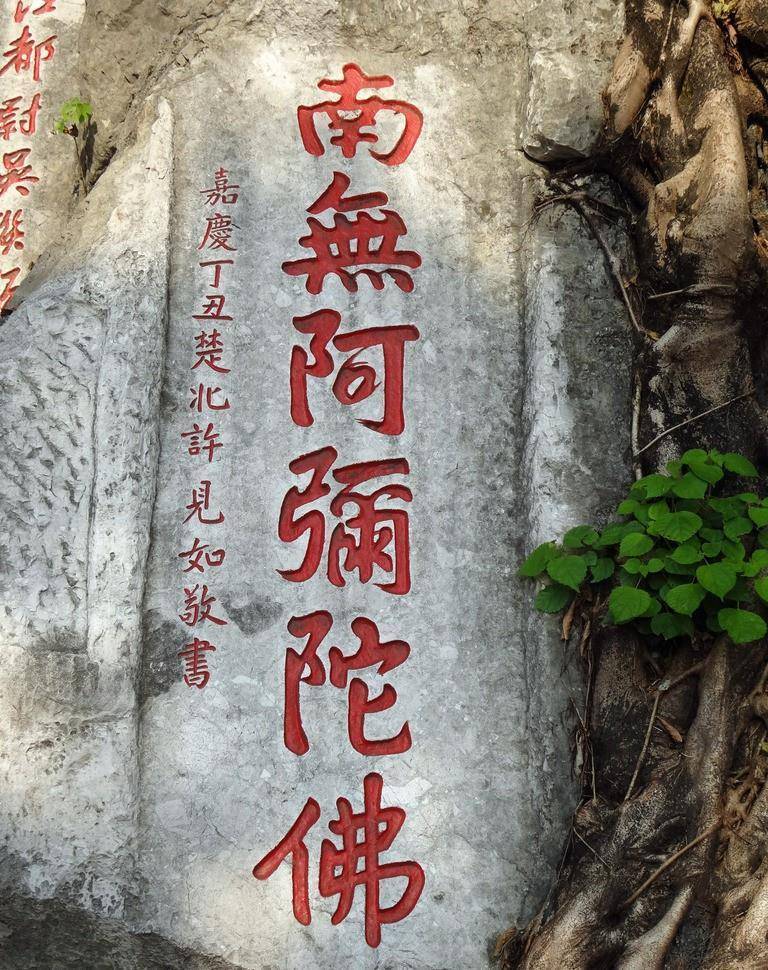 南無阿彌陀佛
嘉慶丁丑楚北許見如敬書
都尉吳